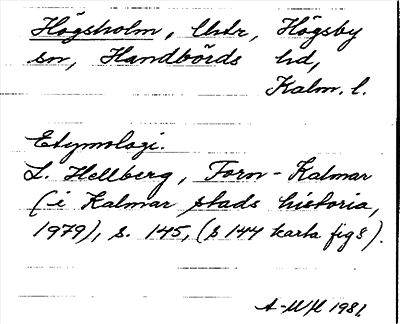 Högsholm, Urkr, Högsby
sn, Handbörds hd,
Kalm. l.
Etymologi.
L. Hellberg, Forn-Kalmar
(i Kalmar stads historia,
1979), s. 145, (s 144 karta fig 8).
A-MH 1981